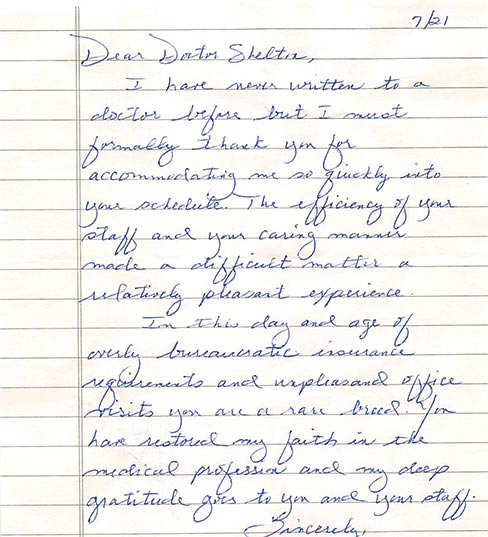 7/21
Dear Doctor Shelton,
I have never written to a
doctor before but I must
formally thank you for
accommodating me so quickly into
your schedule. The efficiency of your
staff and your caring manner
made a difficult matter a
relatively pleasant experience.
In this day and age of
overly bureaucratic insurance
requirements and unpleasand office
visits you are a rare breed. You
have restored my faith in the
medical profession and my deep
gratitude goes to you and your staff.
Sincerely,